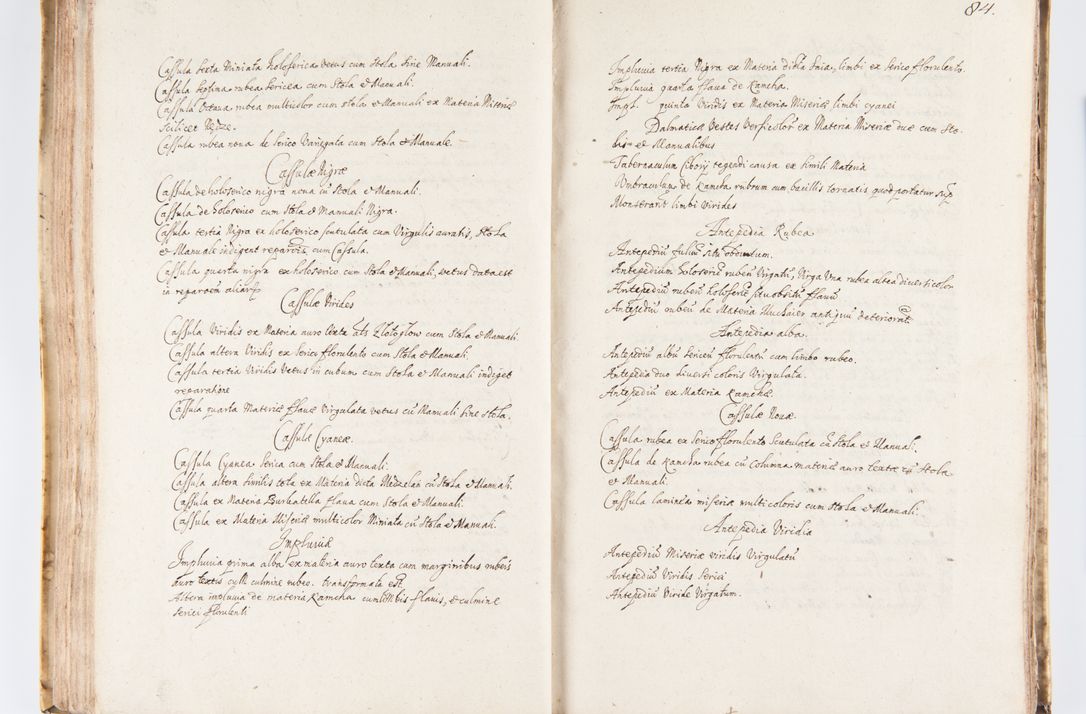 Cassula sexta Miniata holoserica vetus cum Stola sine Manuali.
Cassula septima rubea sericea cum Stola et Manuali.
Cassula Octava rubea multicolor cum stola et Manuali ex Materia Miseriæ
scilicet
Cassula rubea nona de serico Variegata cum Stola et Manuale.
Cassulæ Nigræ
Cassula de holoserico nigra nova cū Stola et Manuali.
Cassula de holoserico cum Stola et Manuali Nigra.
Cassula tertia Nigra ex holoserico scutulata cum Virgulis auratis, Stola
et Manuale indigent cum Cassula.
Cassula quarta nigra ex holoserico cum Stola et Manuali, vetus data est
in
Cassulæ Virides
Cassula Viridis ex Materia auro texta als Zlotoglow cum Stola et Manuali.
Cassula altera Viridis ex Serico florulento cum Stola et Manuali.
Cassula tertia Viridis Vetus in cubum cum Stola et Manuali indiget
reparatione
Cassula quarta Materiæ flavæ Virgulata vetus cū Manuali sine stola.
Cassulæ Cyaneæ.
Cassula Cyanea serica cum Stola et Manuali.
Cassula altera similis tota ex Materia dicta Mezzelan cū Stola et Manuali.
Cassula ex Materia Burkatella flava cum Stola et Manuali.
Cassula ex Materia Miseriæ multicolor Miniata cū Stola et Manuali.
Impluviæ
Impluvia prima alba ex materia auro texta cum marginibus rubeis
auro textis cum culmine rubeo. transformata est
Altera impluvia de materia Kamcha cum limbis flavis, et culmine
serici florulenti
84.
Impluvia tertia Nigra ex Materia dicta limbi ex Serico florulento.
Impluvia quarta flava de Kamcha.
Impl. quinta Viridis ex Materia Miseriæ limbi cyanei
Dalmaticæ Vestes Versicolor ex Materia Miseriæ duæ cum Sto-
lis et Manualibus
Tabernaculum Ciborij tegendi causa ex simili Materia
Umbraculum de Kamcha rubrum cum bacillis tornatis quod portatur sup
Monstrant limbi virides
Antepedia Rubea
Antepediū situ obductum.
Antepedium holoserio rubeū Virgatū, Virga Una rubea altea diversicolor
Antepediū rubeū holoserio situ obsitū flavū
Antepediū rubeū de Materia Muchaier antiquū deteriorat
Antepedia alba.
Antepediū albū sericeū florulentū cum limbo rubeo.
Antepedia duo diversi coloris Virgulata.
Antepediū ex Materia Kamchæ.
Cassulæ Novæ.
Cassula rubea ex serico florulento Scutulata cū Stola et Manual.
Cassula de Kamcha rubea cū Columna materiæ auro textæ cū Stola
et Manuali.
Cassula laminea miseriæ multicoloris cum Stola et Manuali.
Antepedia Viridia
Antepediū Miseriæ viridis Virgulatū
Antepediū Viridis Serici
Antepediū Viride Virgatum.